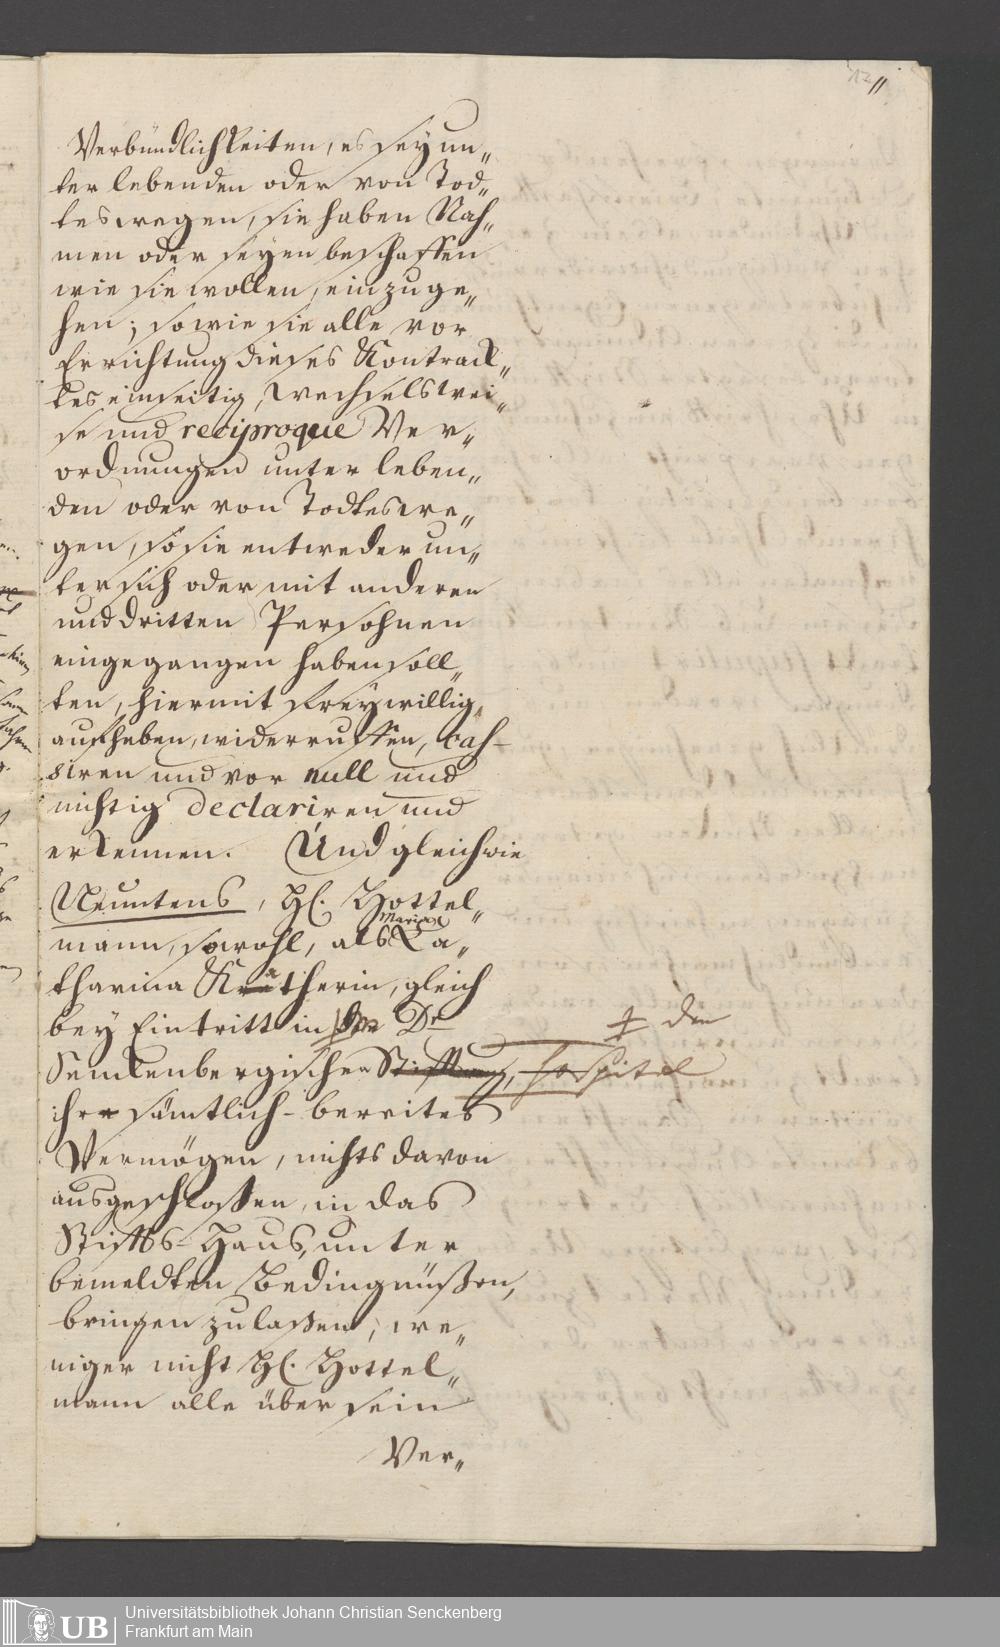 Verbündlichkeiten, es sey un„
ter lebenden oder von Tod„
teswegen, sie haben Nah„
men oder seyen beschaffen
wie sie wollen, einzuge„
hen; so wie sie alle vor
Errichtung dieses Kontrack„
tes einseitig, wechselswei„
se und reciproque Ver„
ordnungen unter leben„
den oder von Todteswe„
gen, so sie entweder un„
ter sich oder mit anderen
und dritten Persohnen
eingegangen haben soll„
ten, hiermit freywillig
aufheben, widerruffen, cas-
siren und vor null und
nichtig declariren und
erkennen. Und gleichwie
Neuntens, H. Hottel„
mann, sowohl, als Maria Ca„
tharina Kratherin, gleich
bey Eintritt in Dr
‡ den
Senckenbergischen Stiftung, Hospital
ihr sämtlich-bereites
Vermögen, nichts davon
ausgeschloßen, in das
Stiffts-Haus, unter
bemeldten Bedingnüßen,
bringen zu laßen; we„
niger nicht H. Hottel„
mann alle über sein
Ver„
UB
Universitätsbibliothek Johann Christian Senckenberg
Frankfurt am Main